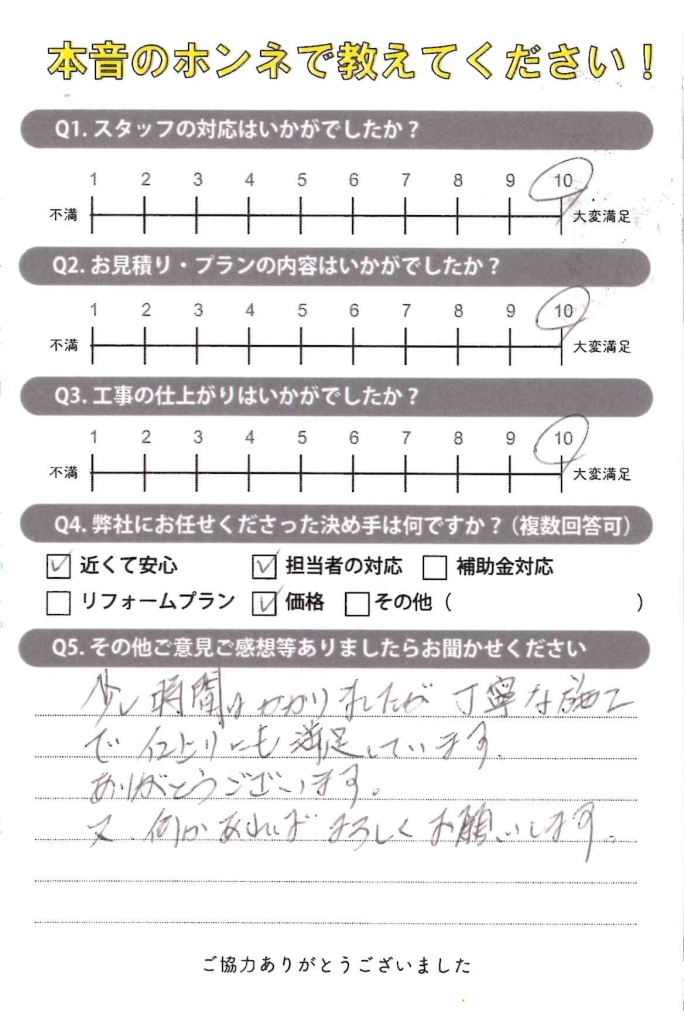 本音のホンネで教えてください!
Q1. スタッフの対応はいかがでしたか?
1 2 3 4 5 6 7 8 9 10
不満 大変満足
Q2. お見積り・プランの内容はいかがでしたか?
1 2 3 4 5 6 7 8 9 10
不満 大変満足
Q3. 工事の仕上がりはいかがでしたか?
1 2 3 4 5 6 7 8 9 10
不満 大変満足
Q4. 弊社にお任せくださった決め手は何ですか?(複数回答可)
☑ 近くて安心 ☑ 担当者の対応 □ 補助金対応
□ リフォームプラン ☑ 価格 □ その他( )
Q5. その他ご意見ご感想等ありましたらお聞かせください
少し時間はかかりましたが 丁寧な施工
で 仕上りにも満足しています。
ありがとうございます。
又、何かあればよろしくお願いします。
ご協力ありがとうございました